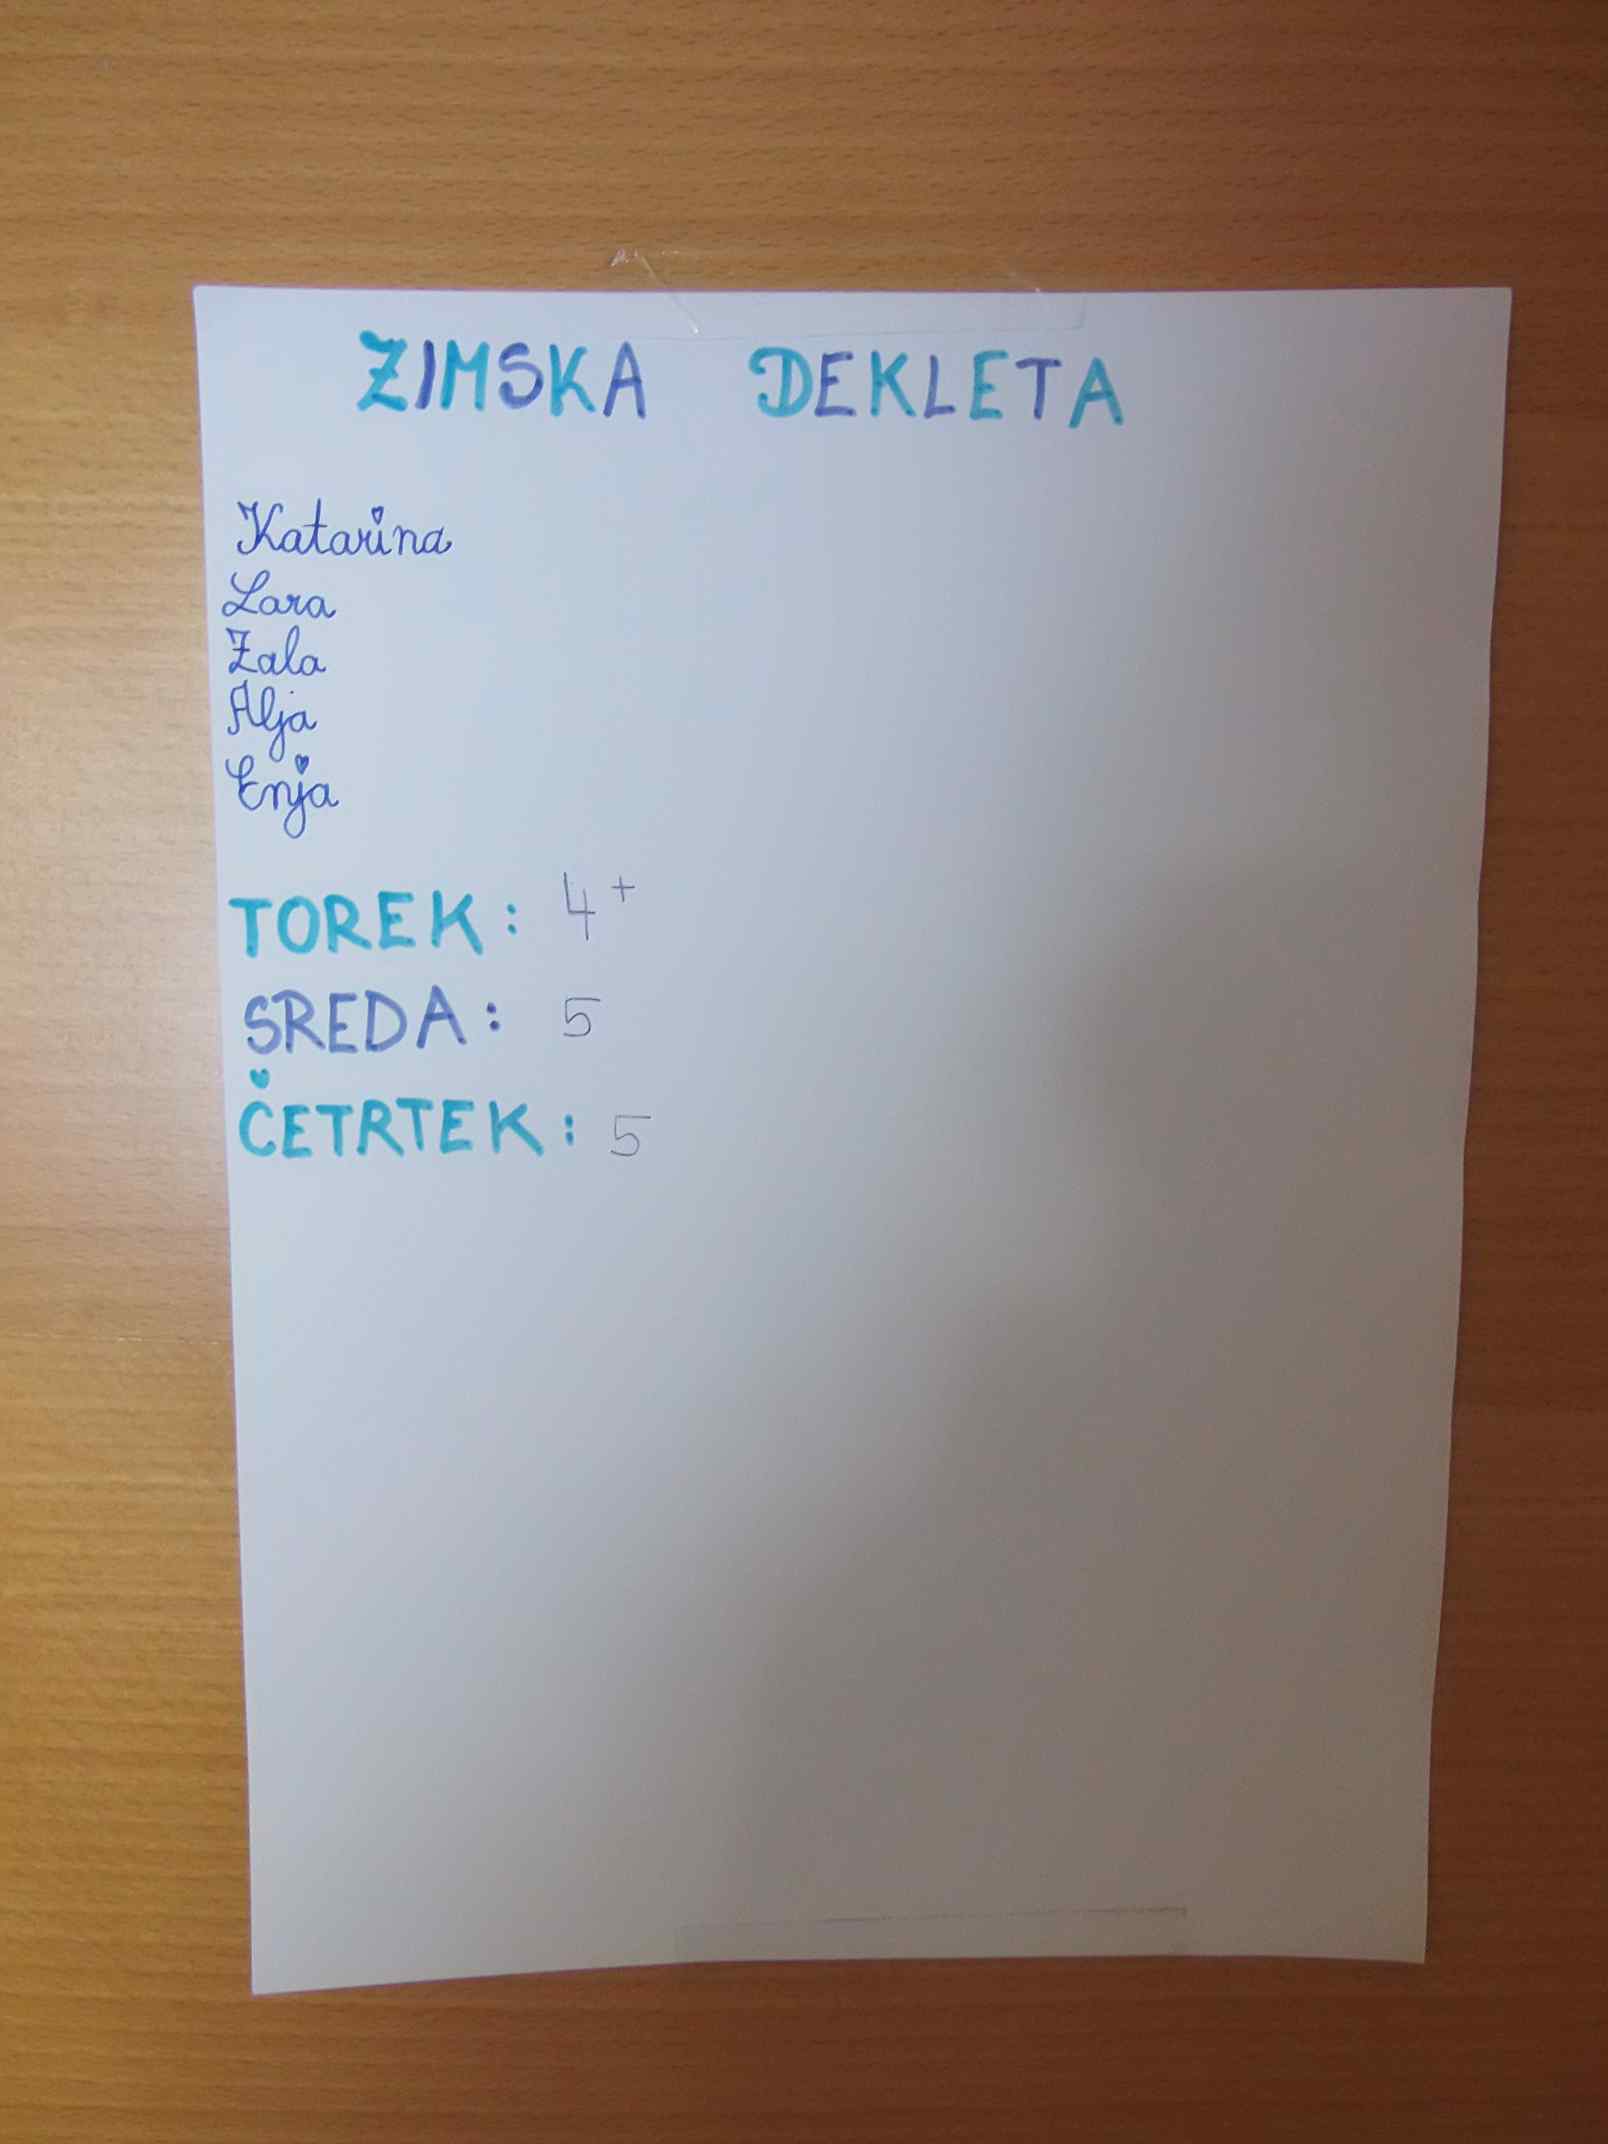 ZIMSKA DEKLETA
Katarina
Lara
Zala
Alja
Enja
TOREK: 4+
SREDA: 5
ČETRTEK: 5